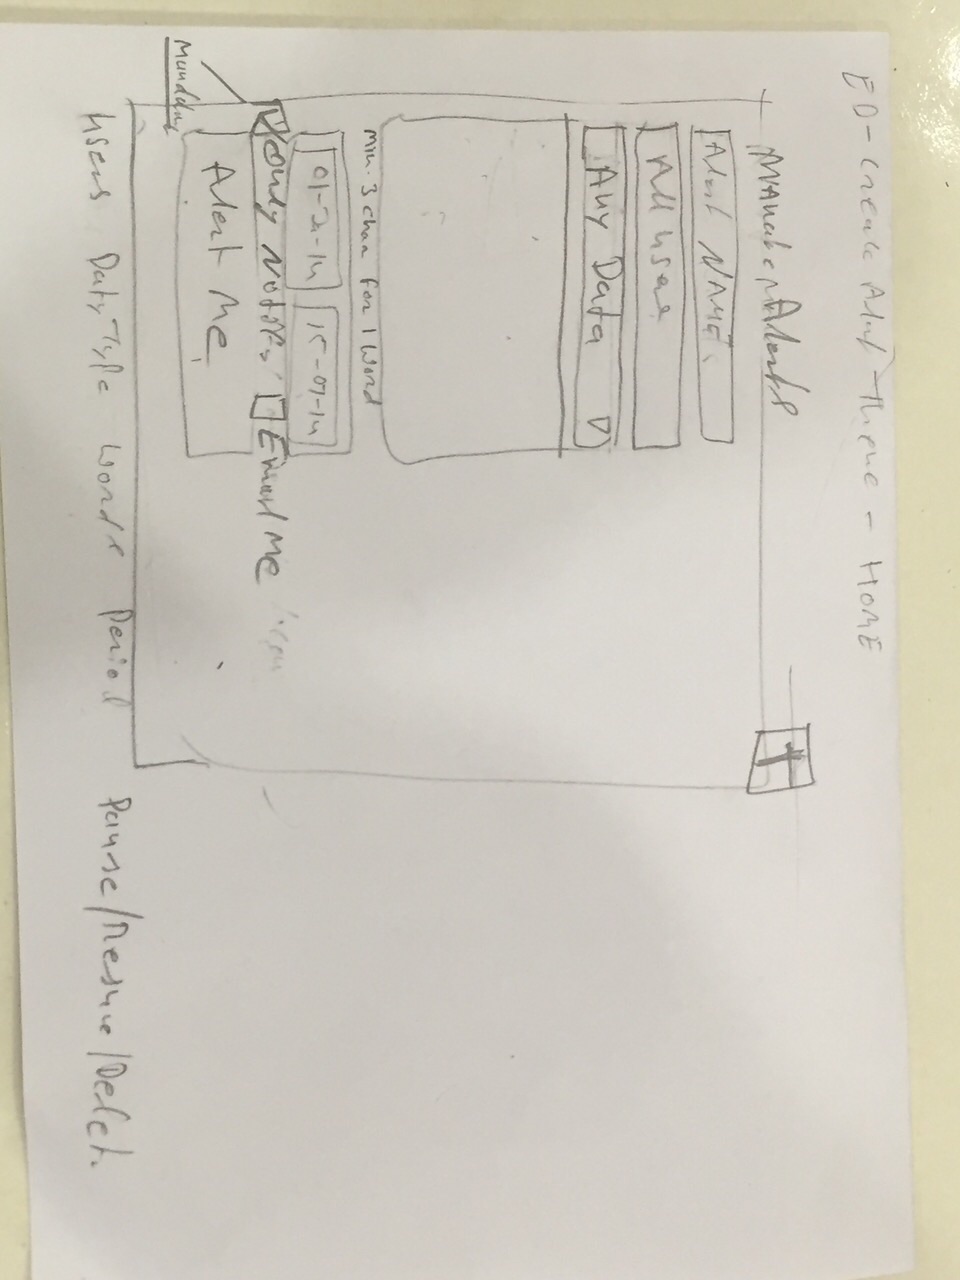 ED - Create Alert - Theme - HOME
Manage Alerts
+
Alert Name
All user
Any Data
Min. 3 char for 1 word
01-2-14 15-07-14
Only Notify Email Me
Alert Me
Users Data Type Words Period Pause/Resume/Delet.